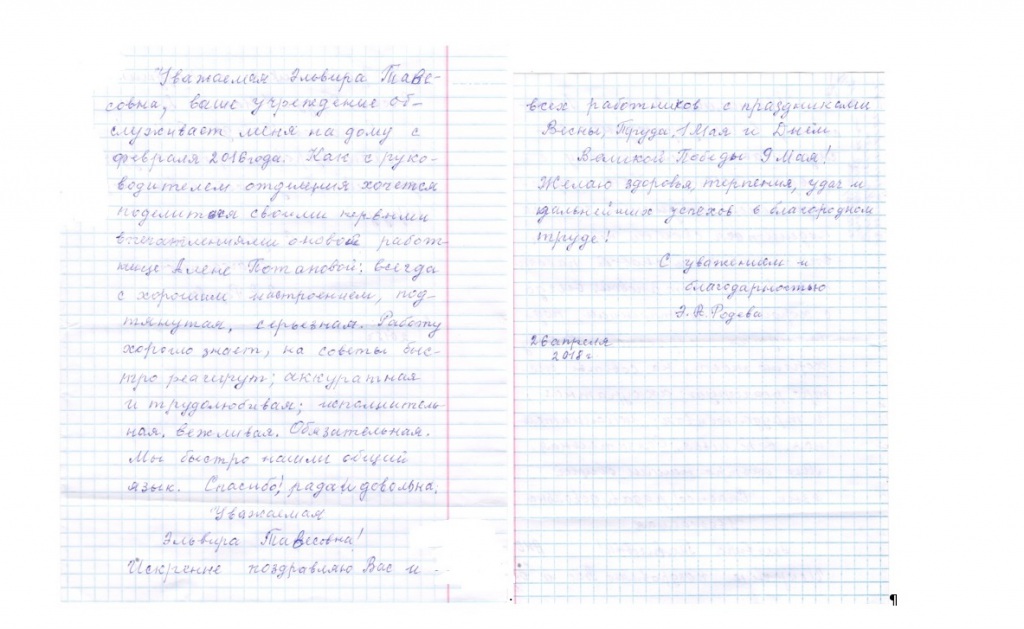 Уважаемая Эльвира Таве-
совна, ваше учреждение об-
служивает меня на дому с
февраля 2016 года. Как с руко-
водителем отделения хочется
поделиться своими первыми
впечатлениями о новой работ
нице Алене Потаповой: всегда
с хорошим настроением, под-
тянутая, серьезная. Работу
хорошо знает, на советы быс-
тро реагирут; аккуратная
и трудолюбивая; исполнитель-
ная, вежливая. Обязательная.
Мы быстро нашли общий
язык. Спасибо! рада и довольна.
Уважаемая
Эльвира Тавесовна!
Искренне поздравляю Вас и -
всех работников с праздниками
Весны, Труда, 1 Мая и Днём
Великой Победы 9 Мая!
Желаю здоровья, терпения, удач и
дальнейших успехов в благородном
труде!
С уважением и
благодарностью
Э. А. Родева
26 апреля
2018 г
¶